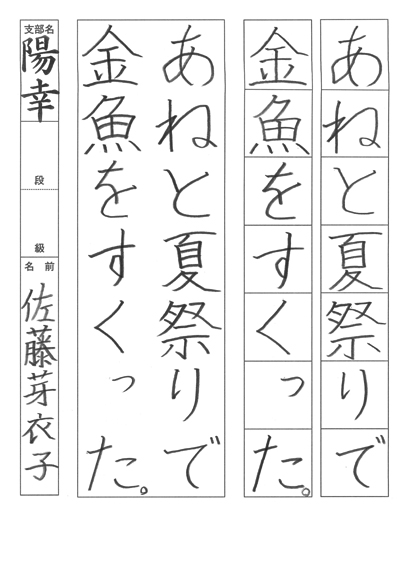 あねと夏祭りで
金魚をすくった。
あねと夏祭りで
金魚をすくった。
支部名
陽幸
段
級
名前
佐藤芽衣子